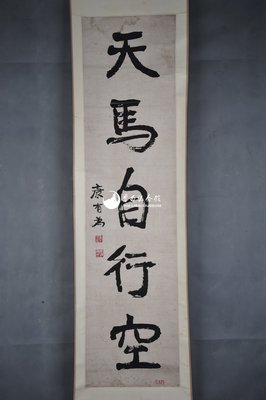 天馬自行空
康有為